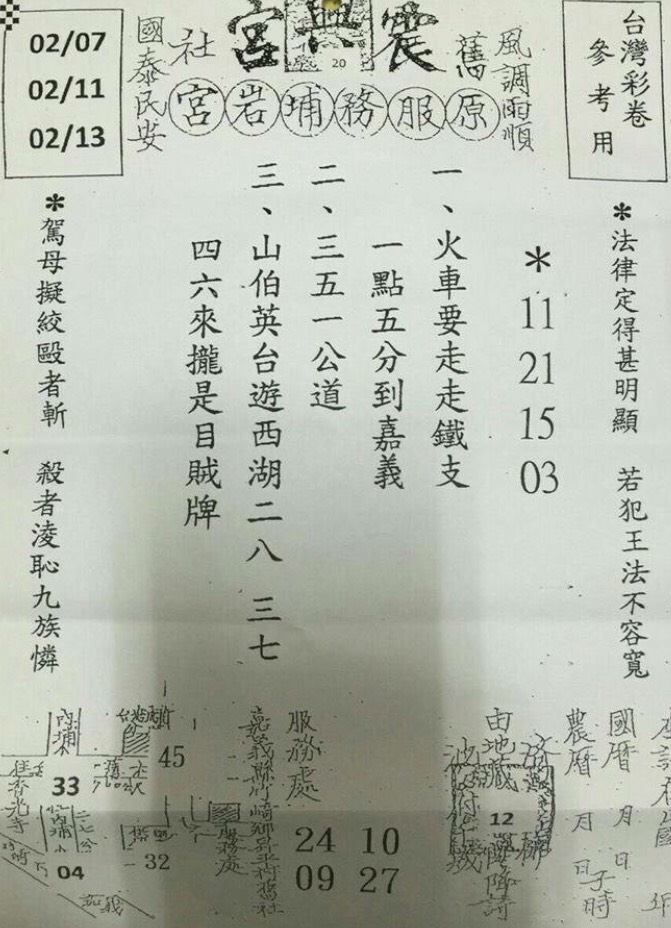 台灣彩卷
參考用
02/07
02/11
02/13
風調雨順
國泰民安
震興宮
20
舊社
原服務埔岩宮
*法律定得甚明顯 若犯王法不容寬
*
11
21
15
03
一、火車要走走鐵支
一點五分到嘉義
二、三五一公道
三、山伯英台遊西湖二八 三七
四六來攏是目賊牌
*駕母擬絞毆者斬 殺者淩恥九族憐
國曆 月 日
農曆 月 日子時
由地藏
12
服務處
24 10
09 27
嘉義縣竹崎鄉
服務處
內埔
45
33
32
04
嘉義